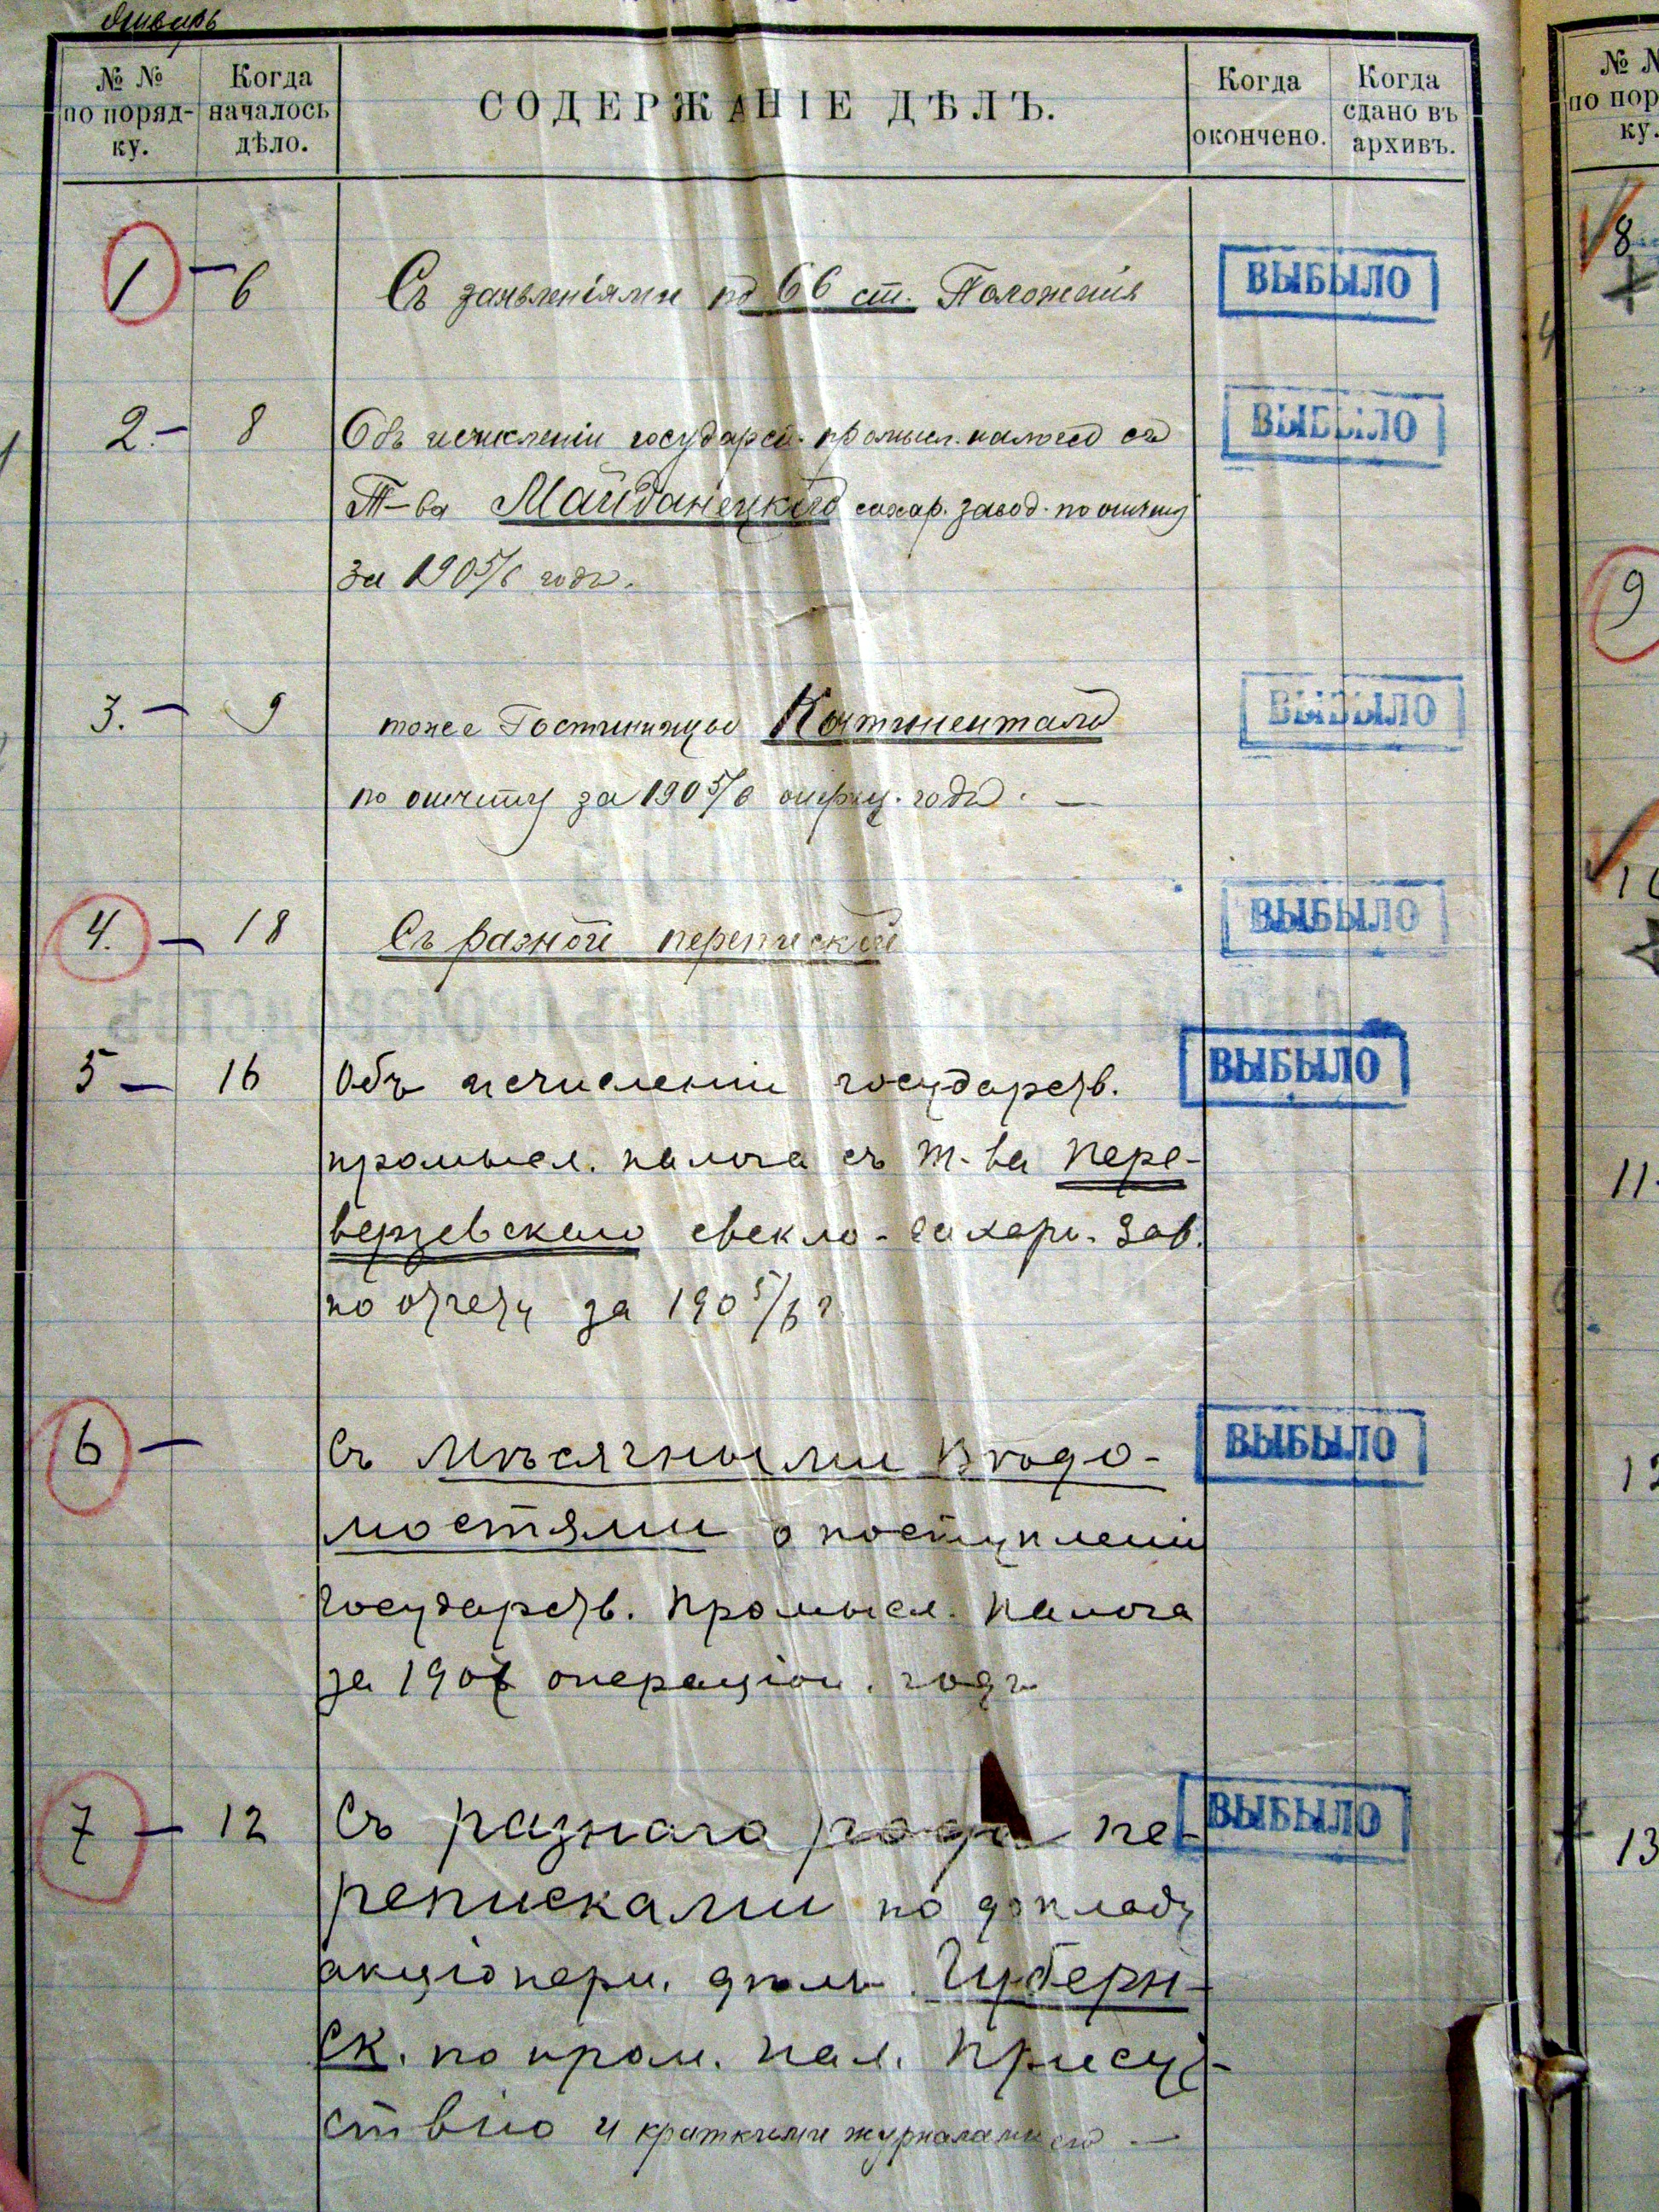 Январь
№ №
по поряд-
ку.
Когда
началось
дѣло.
СОДЕРЖАНІЕ ДѢЛЪ.
Когда
окончено.
Когда
сдано въ
архивъ.
1 - 6 Съ заявленіями по 66 ст. Положенія ВЫБЫЛО
2. - 8 Объ исчисленіи государст. промысл. налога съ ВЫБЫЛО
Т-ва Майданецкаго сахар. завод. по отчету
за 1905/6 годъ.
3. - 9 тоже Гостинницы Континенталь ВЫБЫЛО
по отчету за 1905/6 операц. годъ. —
4. - 18 Съ разной перепиской ВЫБЫЛО
5 - 16 Объ исчисленіи государств. ВЫБЫЛО
промысл. налога съ т-ва Пере-
верзевскаго свекло-сахарн. зав.
по отчету за 1905/6 г.
6 - Съ мѣсячными вѣдо- ВЫБЫЛО
мостями о поступленіи
государств. промысл. налога
за 1907 операціон. годъ
7 - 12 Съ разнаго рода пе- ВЫБЫЛО
реписками по докладу
акціонерн. дѣлъ Губерн-
ск. по пром. нал. Присут-
ствію и краткими журналами его —
№ №
по пор
ку.
8
9
10
11.
12
13